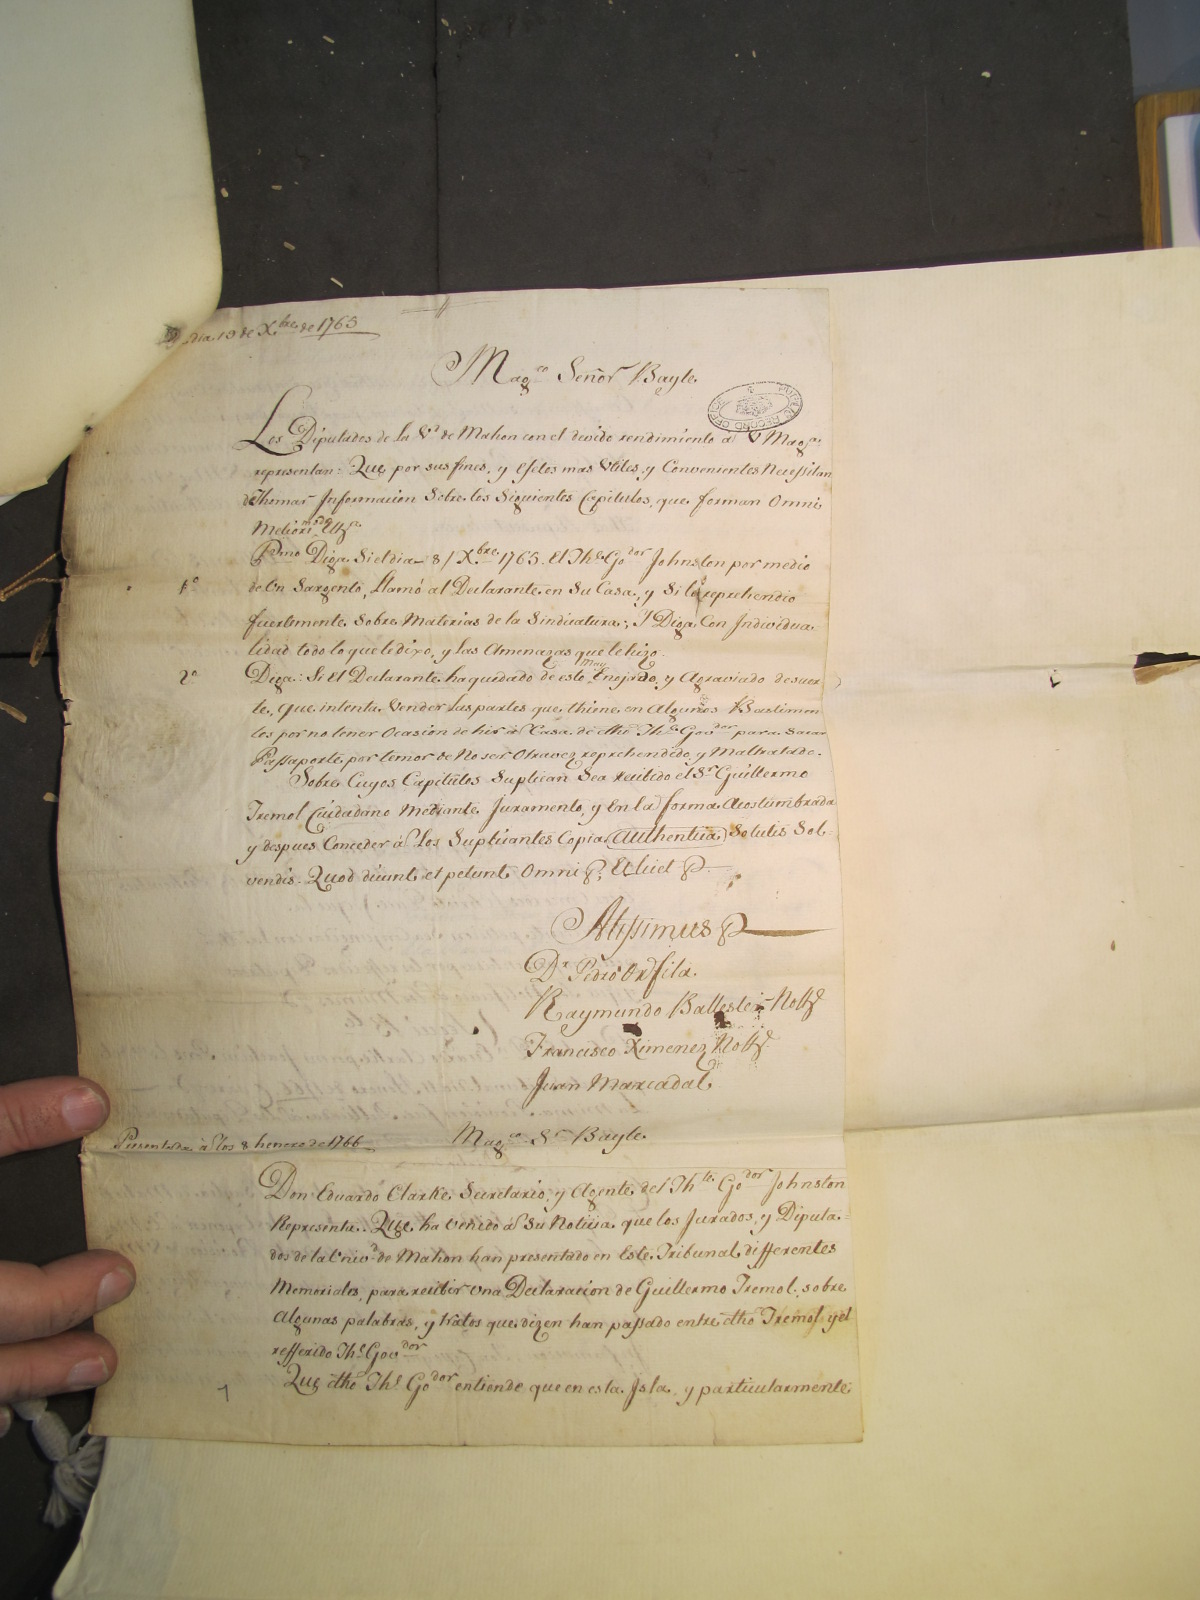 dia 19 de Xbre de 1765
Magco Señor Bayle
PUBLIC RECORD OFFICE
Los Diputados de la Vd de Mahon con el devido rendimiento a V Magca
representan: Que por sus fines, y efetos mas Utiles, y Convenientes Necessitan
de Thomar Informacion Sobre los Siguientes Capitulos, que forman Omni
Meliori modo
1º Pmo Diga Si el dia 8 / Xbre 1765. El The Godor Johnston por medio
de Un Sargento, Llamó al Declarante en Su Casa, y Si le reprehendio
fuertemente Sobre Materias de la Sindicatura; Y Diga Con Individua
lidad todo lo que le dixo, y las Amenazas que le hizo.
2º Diga: Si El Declarante ha quedado de esto may Enojado, y Agraviado de suer
te, que intenta Vender las partes que thiene en Algunos Bastimen
tos por no tener Ocasion de hir á Casa de dho The Govdor para Sacar
Passaporte por temor de No ser Otravez reprehendido, y Maltratado.
Sobre Cuyos Capitulos Suplican Sea recibido el Sr Guillermo
Tremol Ciudadano Mediante Juramento, y En la forma Acostumbrada
y despues Conceder á Los Suplicantes Copia Authentica Solutis Sol-
vendis. Quod dicunt et petunt Omni & Et licet &
Altissimus &
Dr Pedro Orfila
Raymundo Ballester Notto
Francisco Ximenez Notto
Juan Marcadal
Presentada á los 8 henero de 1766
Magco Sr Bayle
Don Eduardo Clarke Secretario, y Agente del Thte Godor Johnston
Representa: Que ha venido á Su Noticia que los Jurados, y Diputa-
dos de la Univd de Mahon han presentado en Este Tribunal differentes
Memoriales, para recibir Una Declaracion de Guillermo Tremol sobre
Algunas palabras, y tratos que dizen han passado entre dho Tremol y el
refferido The Govdor
Que dho The Godor entiende que en esta Isla, y particularmente
7